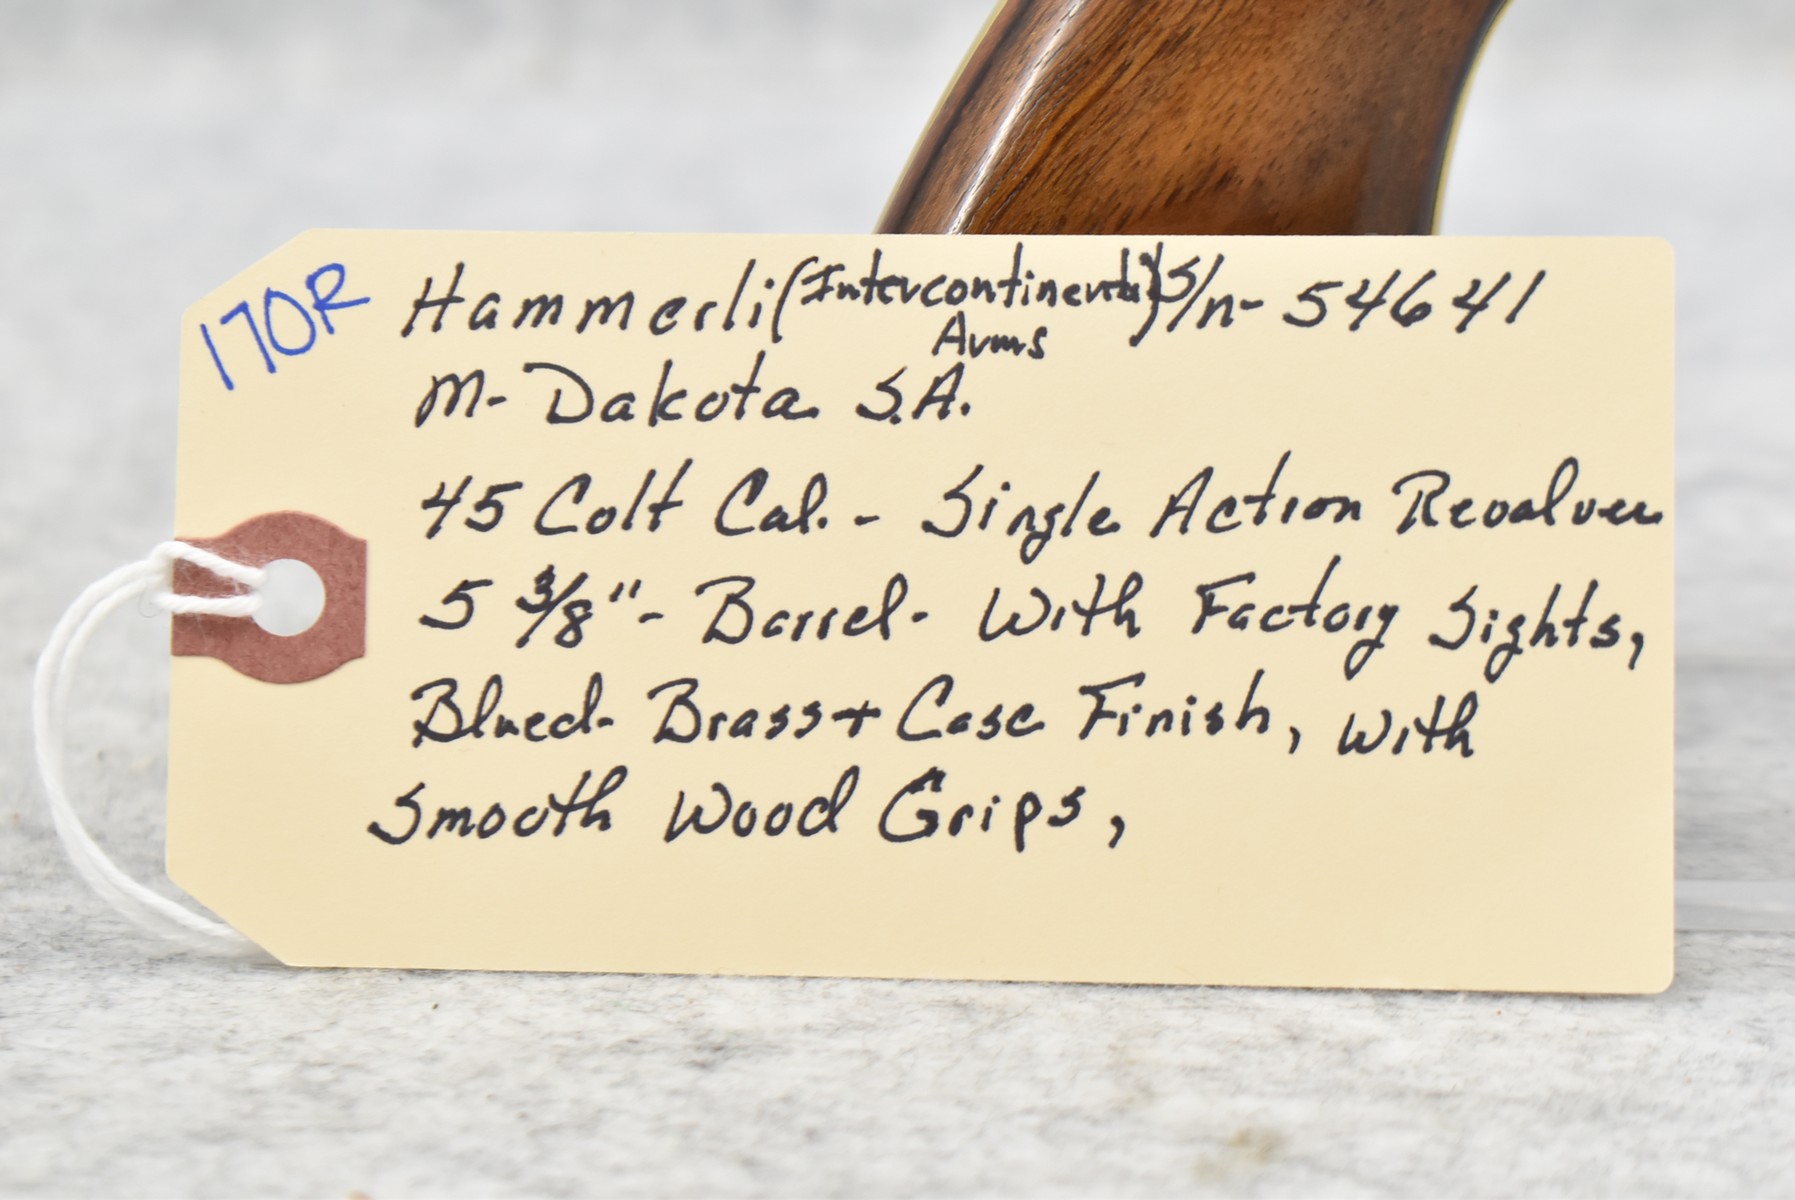 170R
Hammerli (Intercontinental Arms) S/n- 54641
M- Dakota S.A.
45 Colt Cal. - Single Action Revolver
5 3/8" - Barrel - With Factory Sights,
Blued - Brass + Case Finish, With
Smooth Wood Grips,